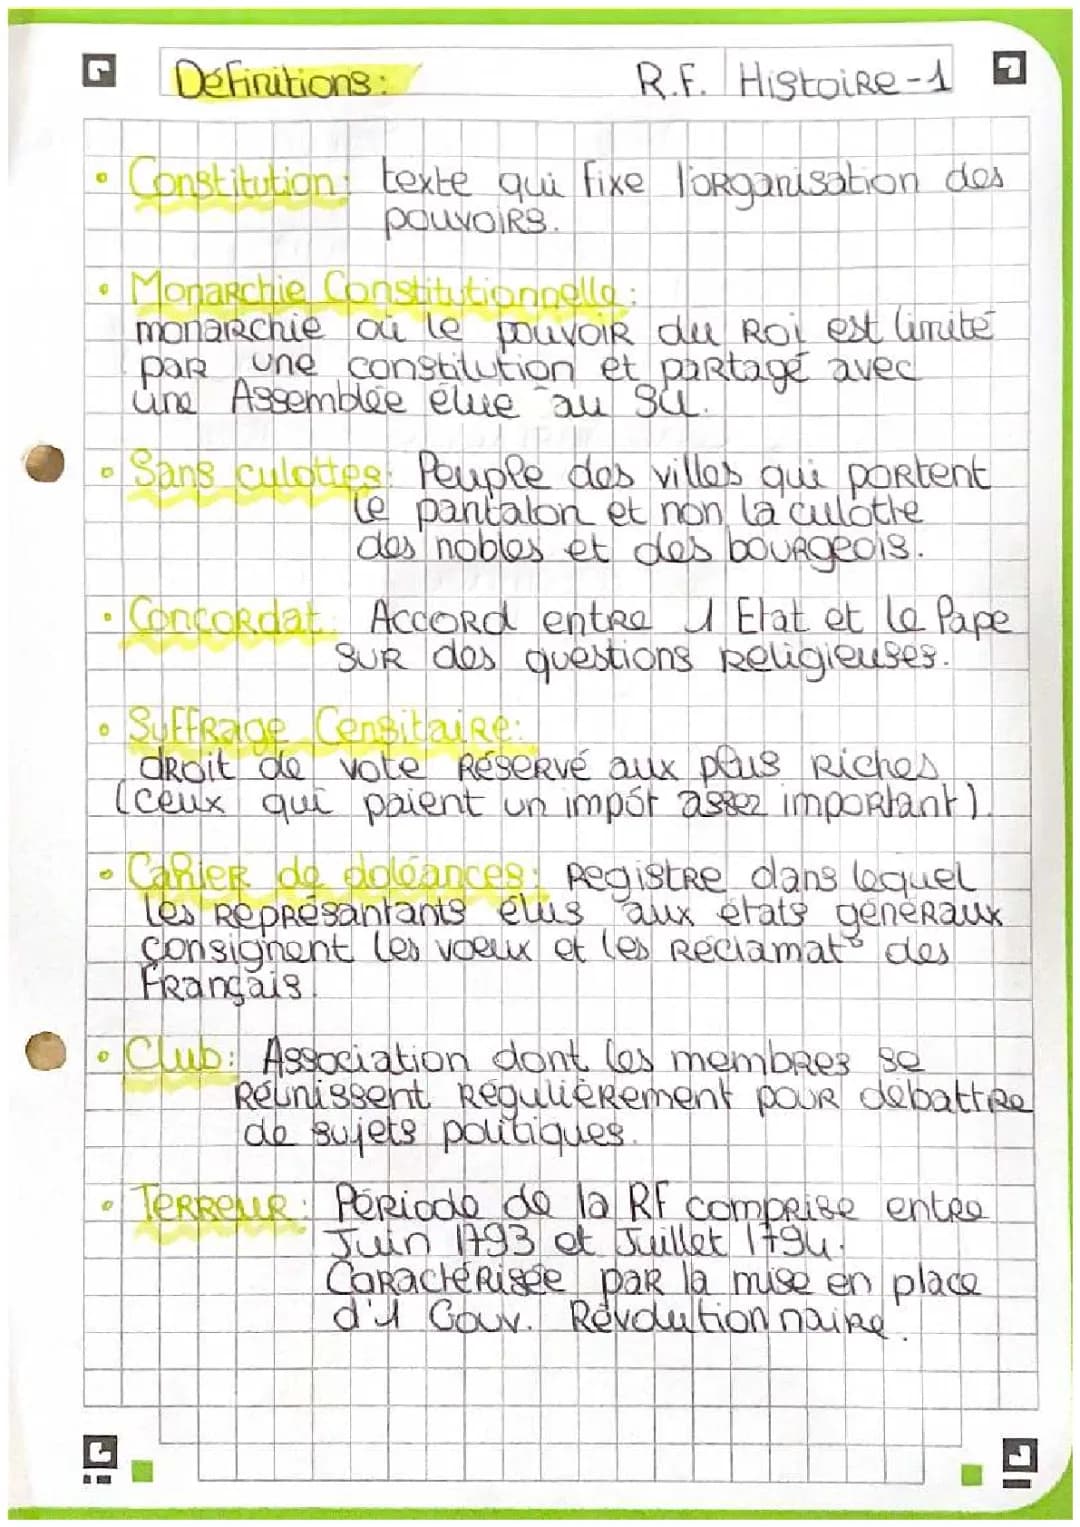 Définitions: R.F. Histoire-1
• Constitution: texte qui fixe l'organisation des
pouvoirs.
• Monarchie Constitutionnelle:
monarchie où le pouvoir du Roi est limité
par une constitution et partagé avec
une Assemblée élue au SU.
• Sans culottes: Peuple des villes qui portent
le pantalon et non la culotte
des nobles et des bourgeois.
• Concordat: Accord entre 1 Etat et le Pape
sur des questions religieuses.
• Suffrage Censitaire:
droit de vote réservé aux plus riches
(ceux qui paient un impôt assez important).
• Cahier de doléances: Registre dans lequel
les représantants élus aux états généraux
consignent les voeux et les réclamat° des
Français.
• Club: Association dont les membres se
réunissent régulièrement pour débattre
de sujets politiques.
• Terreur: Période de la RF comprise entre
Juin 1793 et Juillet 1794.
Caractérisée par la mise en place
d'1 Gouv. Révolutionnaire.